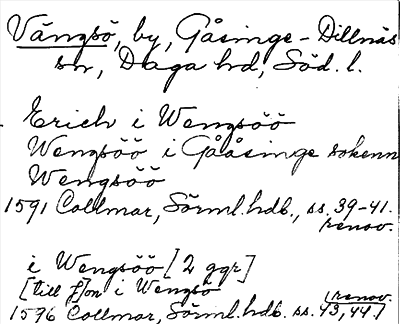 Vängsö, by, Gåsinge-Dillnäs
sn, Daga hd, Söd. l.
Erich i Wengsöö
Wengsöö i Gååsinge sokenn
Wengsöö
1591 Collmar, Sörml.hdb., ss. 39-41.
renov.
i Wengsöö [2 ggr]
[till f]on i Wengsö
(renov.
1596 Collmar, Sörml.hdb. ss. 43, 44.)